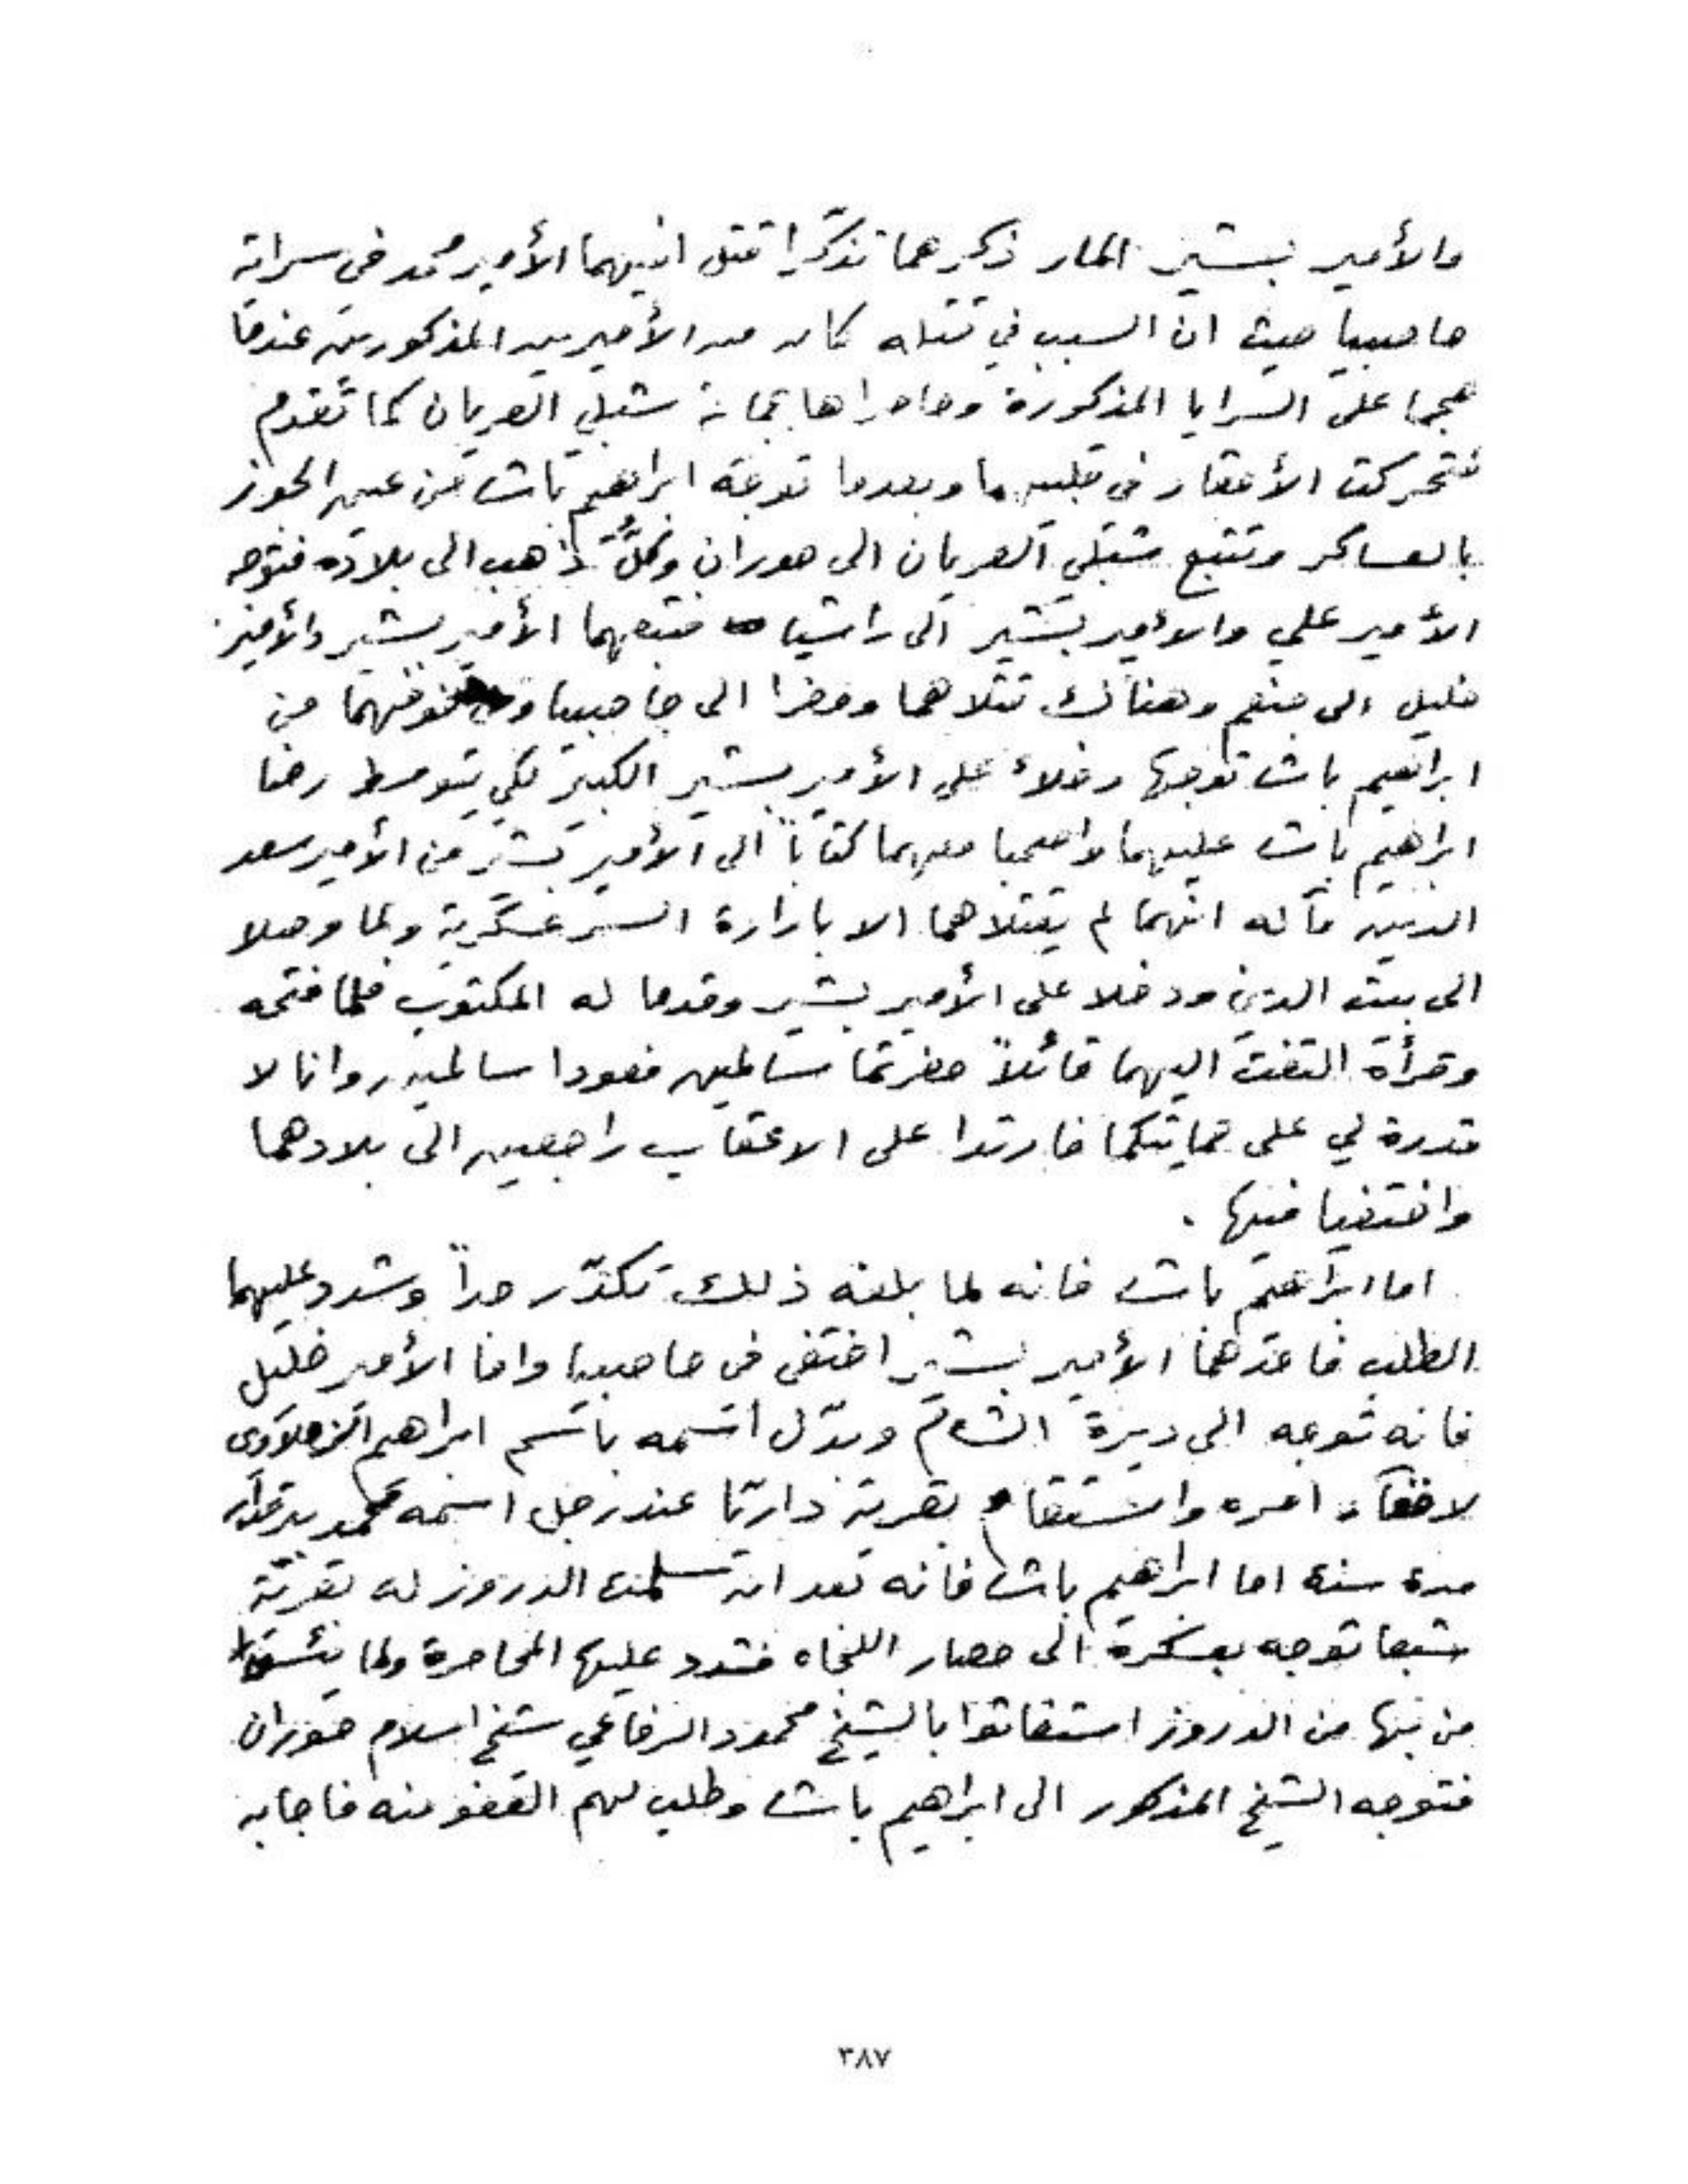 والأمير بشير المار ذكرهما تذكّرا قتل اخيهما الأمير محمد في سراية
حاصبيا حيث ان السبب في قتله كان من الأميرين المذكورين عندما
هجما على السرايا المذكورة وحاصراها بمعاونة شبلي العريان كما تقدم
فتحركت الأحقاد في قلبيهما وبعدما توجه ابراهيم باشا من عين الجوز
بالعساكر وتتبع شبلي العريان الى حوران وكلٌّ ذهب الى بلاده فتوجه
الأمير علي والأمير بشير الى راشيا فتبعهما الأمير بشير والأمير
خليل الى منعم وهناك قتلاهما وحضرا الى حاصبيا ولخوفهما من
ابراهيم باشا توجها دخلاء على الأمير بشير الكبير لكي يتوسط رضا
ابراهيم باشا عليهما واصحبا معهما كتاباً الى الأمير بشير من الأمير سعد
الدين مآله انهما لم يقتلاهما الا بارادة السر عسكرية ولما وصلا
الى بيت الدين ودخلا على الأمير بشير وقدما له المكتوب فلما فتحه
وقرأه التفت اليهما قائلاً حضرتما سالمين فعودا سالمين وانا لا
قدرة لي على حمايتكما فارتدا على الاعقاب راجعين الى بلادهما
واختفيا فيها .
اما ابراهيم باشا فانه لما بلغه ذلك تكدّر جداً وشدد عليهما
الطلب فاحدهما الأمير بشير اختفى في حاصبيا واما الأمير خليل
فانه توجه الى ديرة الشام وبدّل اسمه باسم ابراهيم الزحلاوي
لاخفاء امره واستقام بقرية داريا عند رجل اسمه محمد
مدة سنة اما ابراهيم باشا فانه بعد ان سلمت الدروز له بقرية
شبعا توجه بعسكره الى حصار اللجاه فشدد عليها المحاصرة ولما يئسوا
من بها من الدروز استغاثوا بالشيخ محمود الرفاعي شيخ اسلام حوران
فتوجه الشيخ المذكور الى ابراهيم باشا وطلب لهم العفو منه فاجابه
٣٨٧